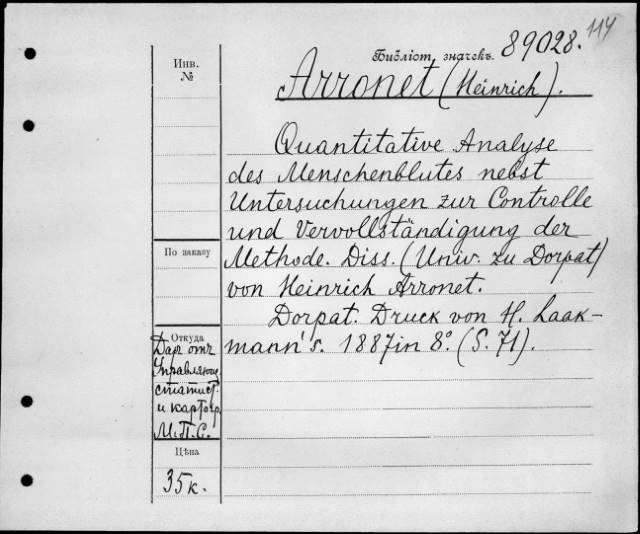 114
Библіот. значекъ. 89028.
Инв.
№
Arronet (Heinrich).
Quantitative Analyse
des Menschenblutes nebst
Untersuchungen zur Controlle
und Vervollständigung der
По заказу
Methode. Diss. (Univ. zu Dorpat)
von Heinrich Arronet.
Dorpat. Druck von H. Laak-
mann's. 1887 in 8º. (S. 71).
Откуда
Дар отъ
Управляющ.
статист.
и картогр.
М.П.С.
Цѣна
35к.